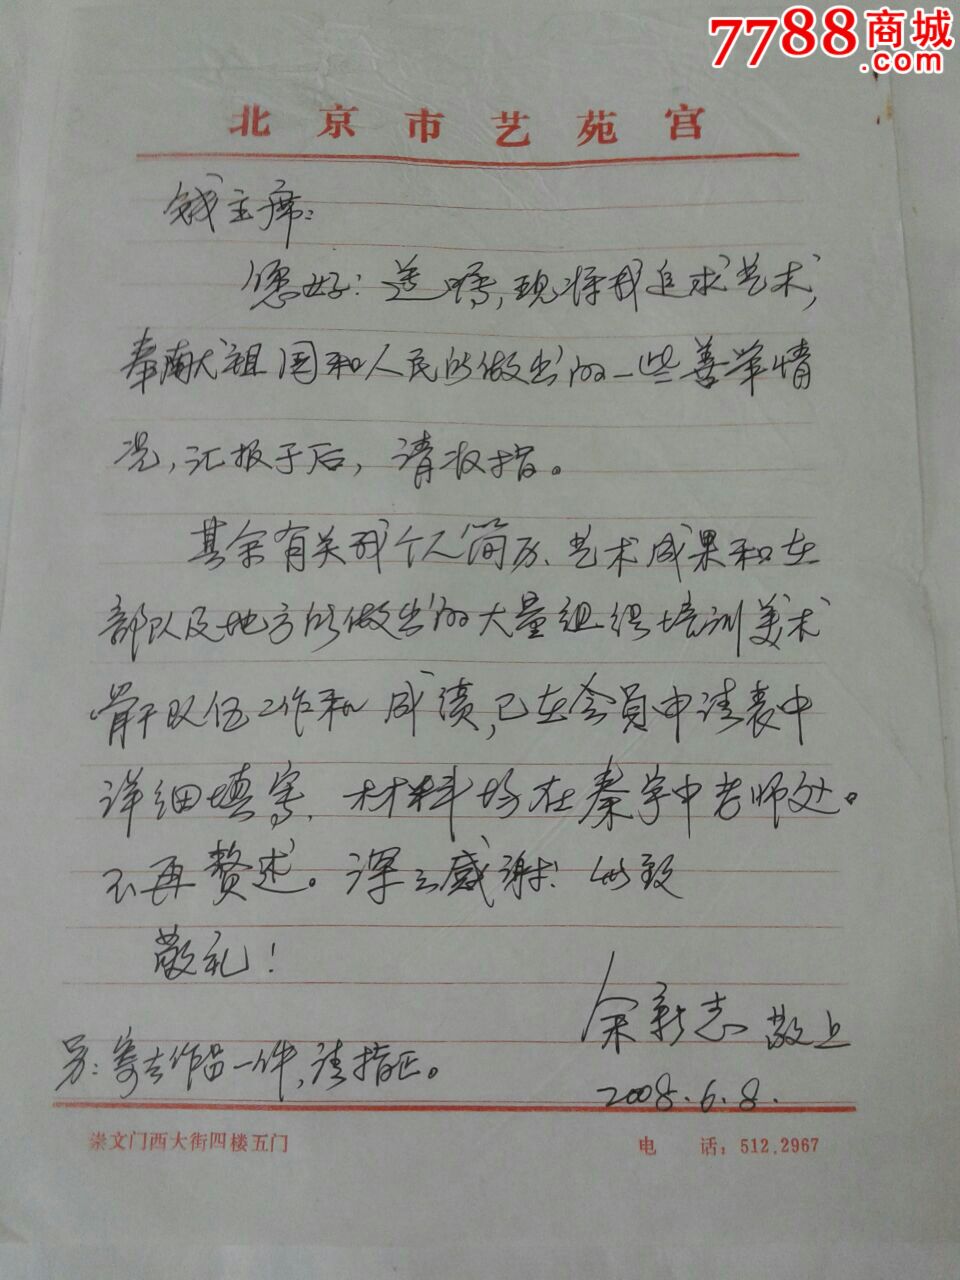 7788商城
.com
北京市艺苑宫
钱主席：
您好！遵嘱，现将我追求艺术，
奉献祖国和人民所做出的一些善举情
况，汇报于后，请收指。
其余有关我个人简历、艺术成果和在
部队及地方所做出的大量组织培训美术
骨干队伍工作和成绩，已在会员申请表中
详细填写，材料均在秦宇中老师处。
不再赘述。深之感谢！此致
敬礼！
余新志 敬上
另：寄去作品一件，请指正。
2008.6.8.
崇文门西大街四楼五门
电 话：512.2967